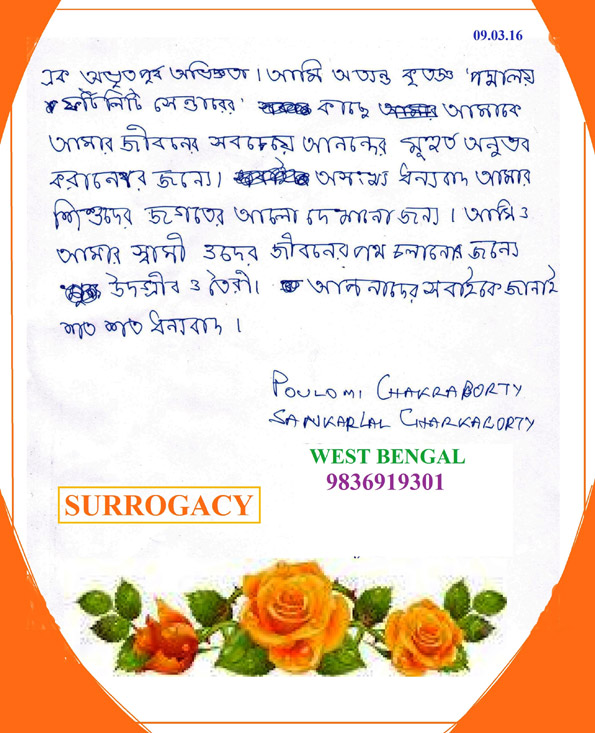 09.03.16
এক অভূতপূর্ব অভিজ্ঞতা। আমি অত্যন্ত কৃতজ্ঞ 'পদ্মালয়
ফার্টিলিটি সেন্টারের' কাছে আমাকে
আমার জীবনের সবচেয়ে আনন্দের মুহূর্ত অনুভব
করানোর জন্যে। অসংখ্য ধন্যবাদ আমার
শিশুদের জগতের আলো দেখানো জন্য। আমি ও
আমার স্বামী ওদের জীবনের পথ চলানোর জন্যে
উদগ্রীব ও তৈরী। আপনাদের সবাইকে জানাই
শত শত ধন্যবাদ।
POULOMI CHAKRABORTY
SANKARLAL CHARKABORTY
WEST BENGAL
9836919301
SURROGACY